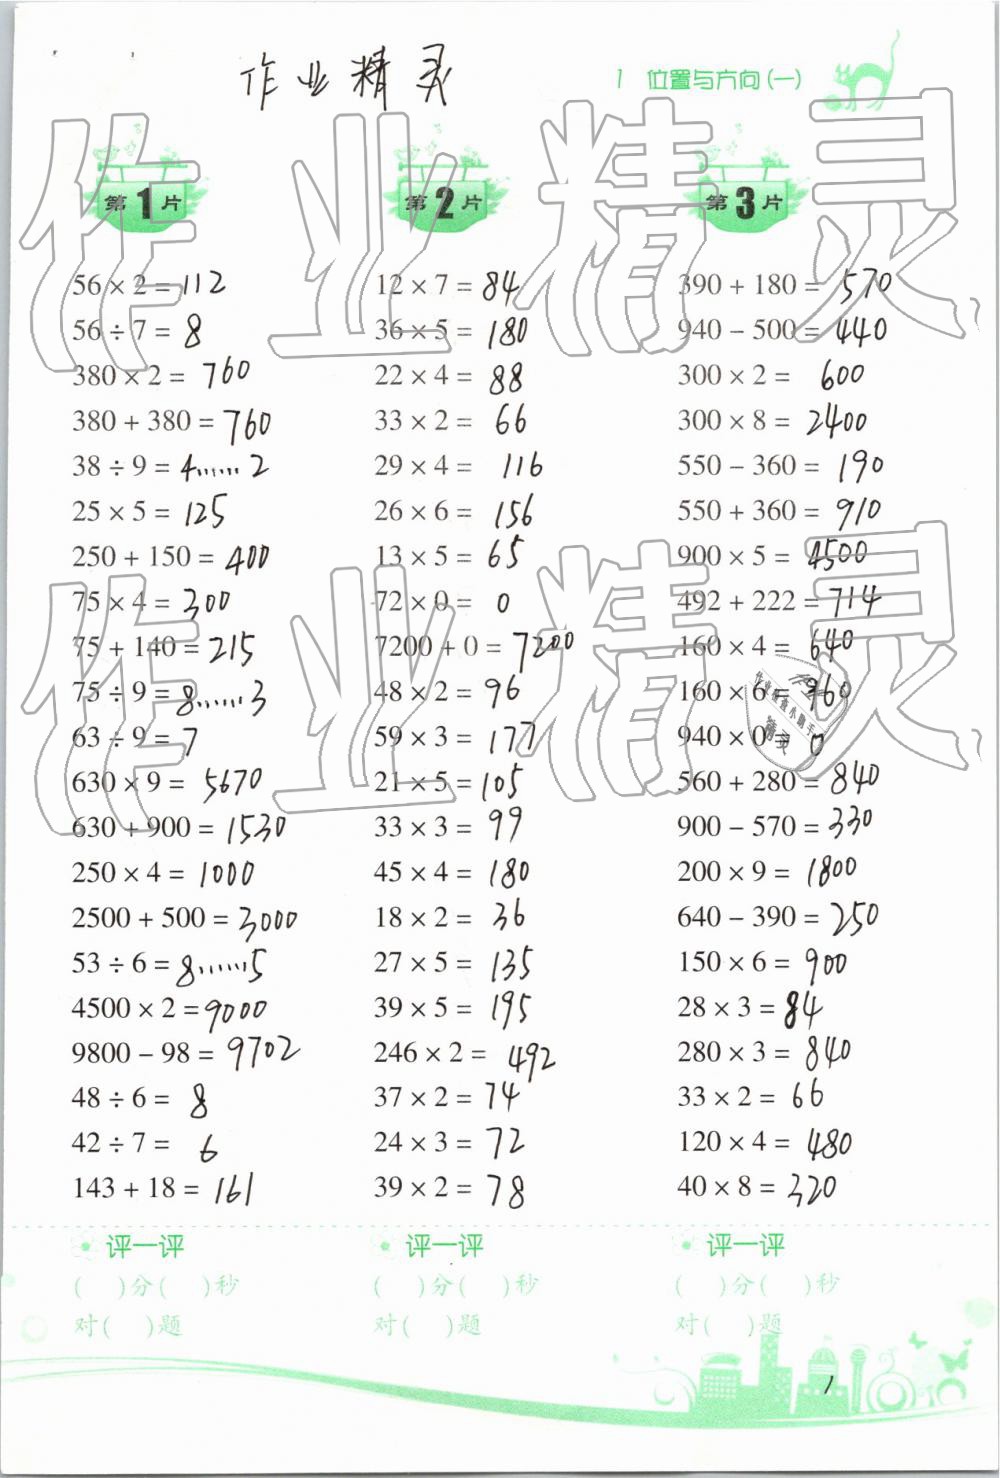 作业精灵
1 位置与方向(一)
第1片
56 × 2 = 112
56 ÷ 7 = 8
380 × 2 = 760
380 + 380 = 760
38 ÷ 9 = 4……2
25 × 5 = 125
250 + 150 = 400
75 × 4 = 300
75 + 140 = 215
75 ÷ 9 = 8……3
63 ÷ 9 = 7
630 × 9 = 5670
630 + 900 = 1530
250 × 4 = 1000
2500 + 500 = 3000
53 ÷ 6 = 8……5
4500 × 2 = 9000
9800 − 98 = 9702
48 ÷ 6 = 8
42 ÷ 7 = 6
143 + 18 = 161
评一评
( )分( )秒
对( )题
第2片
12 × 7 = 84
36 × 5 = 180
22 × 4 = 88
33 × 2 = 66
29 × 4 = 116
26 × 6 = 156
13 × 5 = 65
72 × 0 = 0
7200 + 0 = 7200
48 × 2 = 96
59 × 3 = 177
21 × 5 = 105
33 × 3 = 99
45 × 4 = 180
18 × 2 = 36
27 × 5 = 135
39 × 5 = 195
246 × 2 = 492
37 × 2 = 74
24 × 3 = 72
39 × 2 = 78
评一评
( )分( )秒
对( )题
第3片
390 + 180 = 570
940 − 500 = 440
300 × 2 = 600
300 × 8 = 2400
550 − 360 = 190
550 + 360 = 910
900 × 5 = 4500
492 + 222 = 714
160 × 4 = 640
160 × 6 = 960
940 × 0 = 0
560 + 280 = 840
900 − 570 = 330
200 × 9 = 1800
640 − 390 = 250
150 × 6 = 900
28 × 3 = 84
280 × 3 = 840
33 × 2 = 66
120 × 4 = 480
40 × 8 = 320
评一评
( )分( )秒
对( )题
1
作业精灵
作业精灵